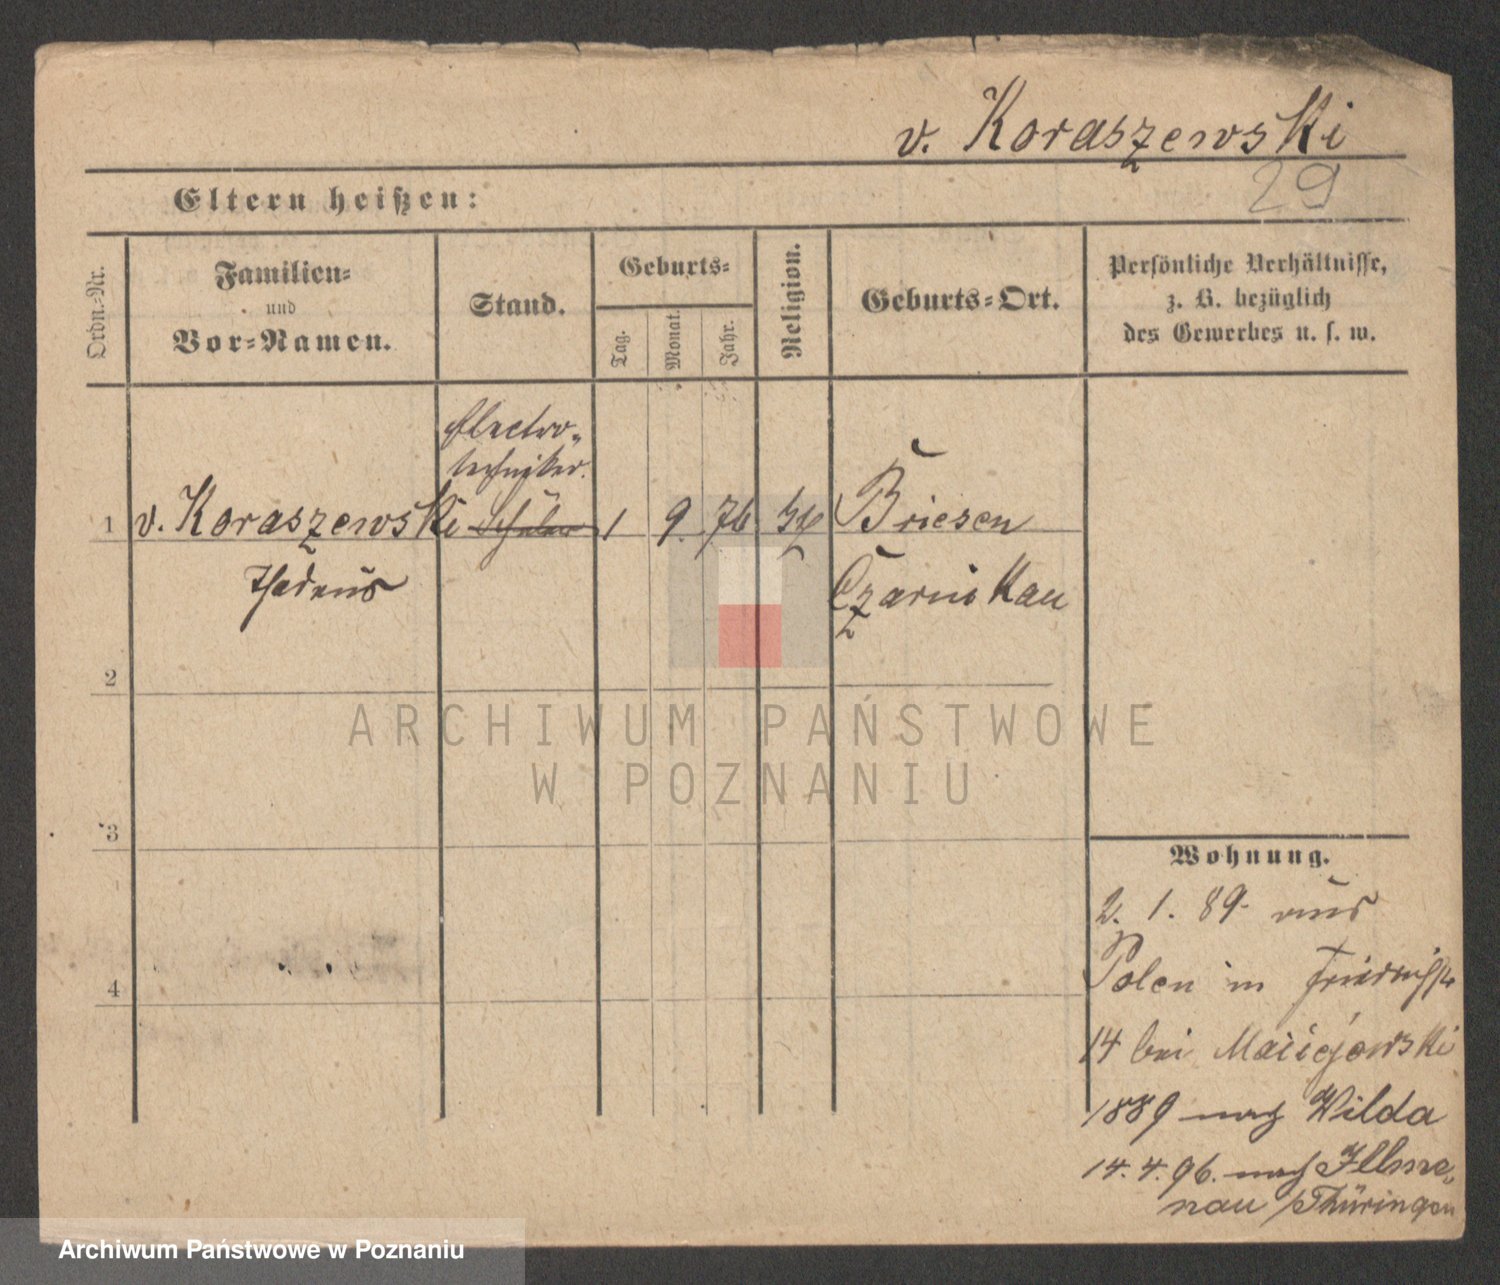 v. Koraszewski
29
Eltern heißen:
Ordn.-Nr.
Familien-
und
Vor-Namen.
Stand.
Geburts-
Tag.
Monat.
Jahr.
Religion.
Geburts-Ort.
Persönliche Verhältnisse,
z. B. bezüglich
des Gewerbes u. s. w.
Electro-
techniker.
1 v. Koraszewski Schüler 1 9. 76 Briesen
Thadeus Czarnikau
2
3
4
Wohnung.
2. 1. 89. aus
Polen in Friedrichstr
14 bei Maciejewski
1889 nach Wilda
14. 4. 96. nach Illme-
nau /Thüringen
ARCHIWUM PAŃSTWOWE
W POZNANIU
Archiwum Państwowe w Poznaniu